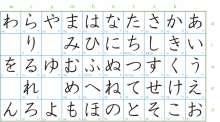 w r y m h n t s k
わ ら や ま は な た さ か あ
り み ひ に ち し き い
を る ゆ む ふ ぬ つ す く う
れ め へ ね て せ け え
ん ろ よ も ほ の と そ こ お